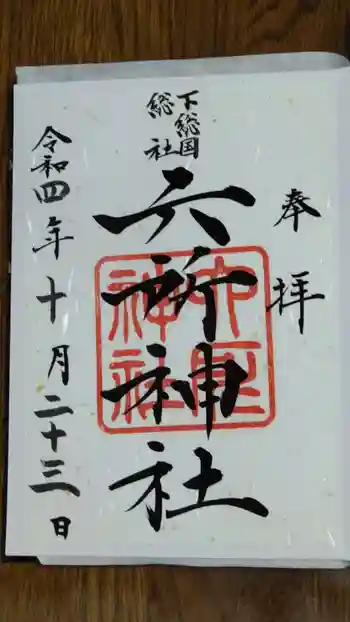 奉拝
下総国
総社
六所神社
六所
神社
令和四年十月二十三日